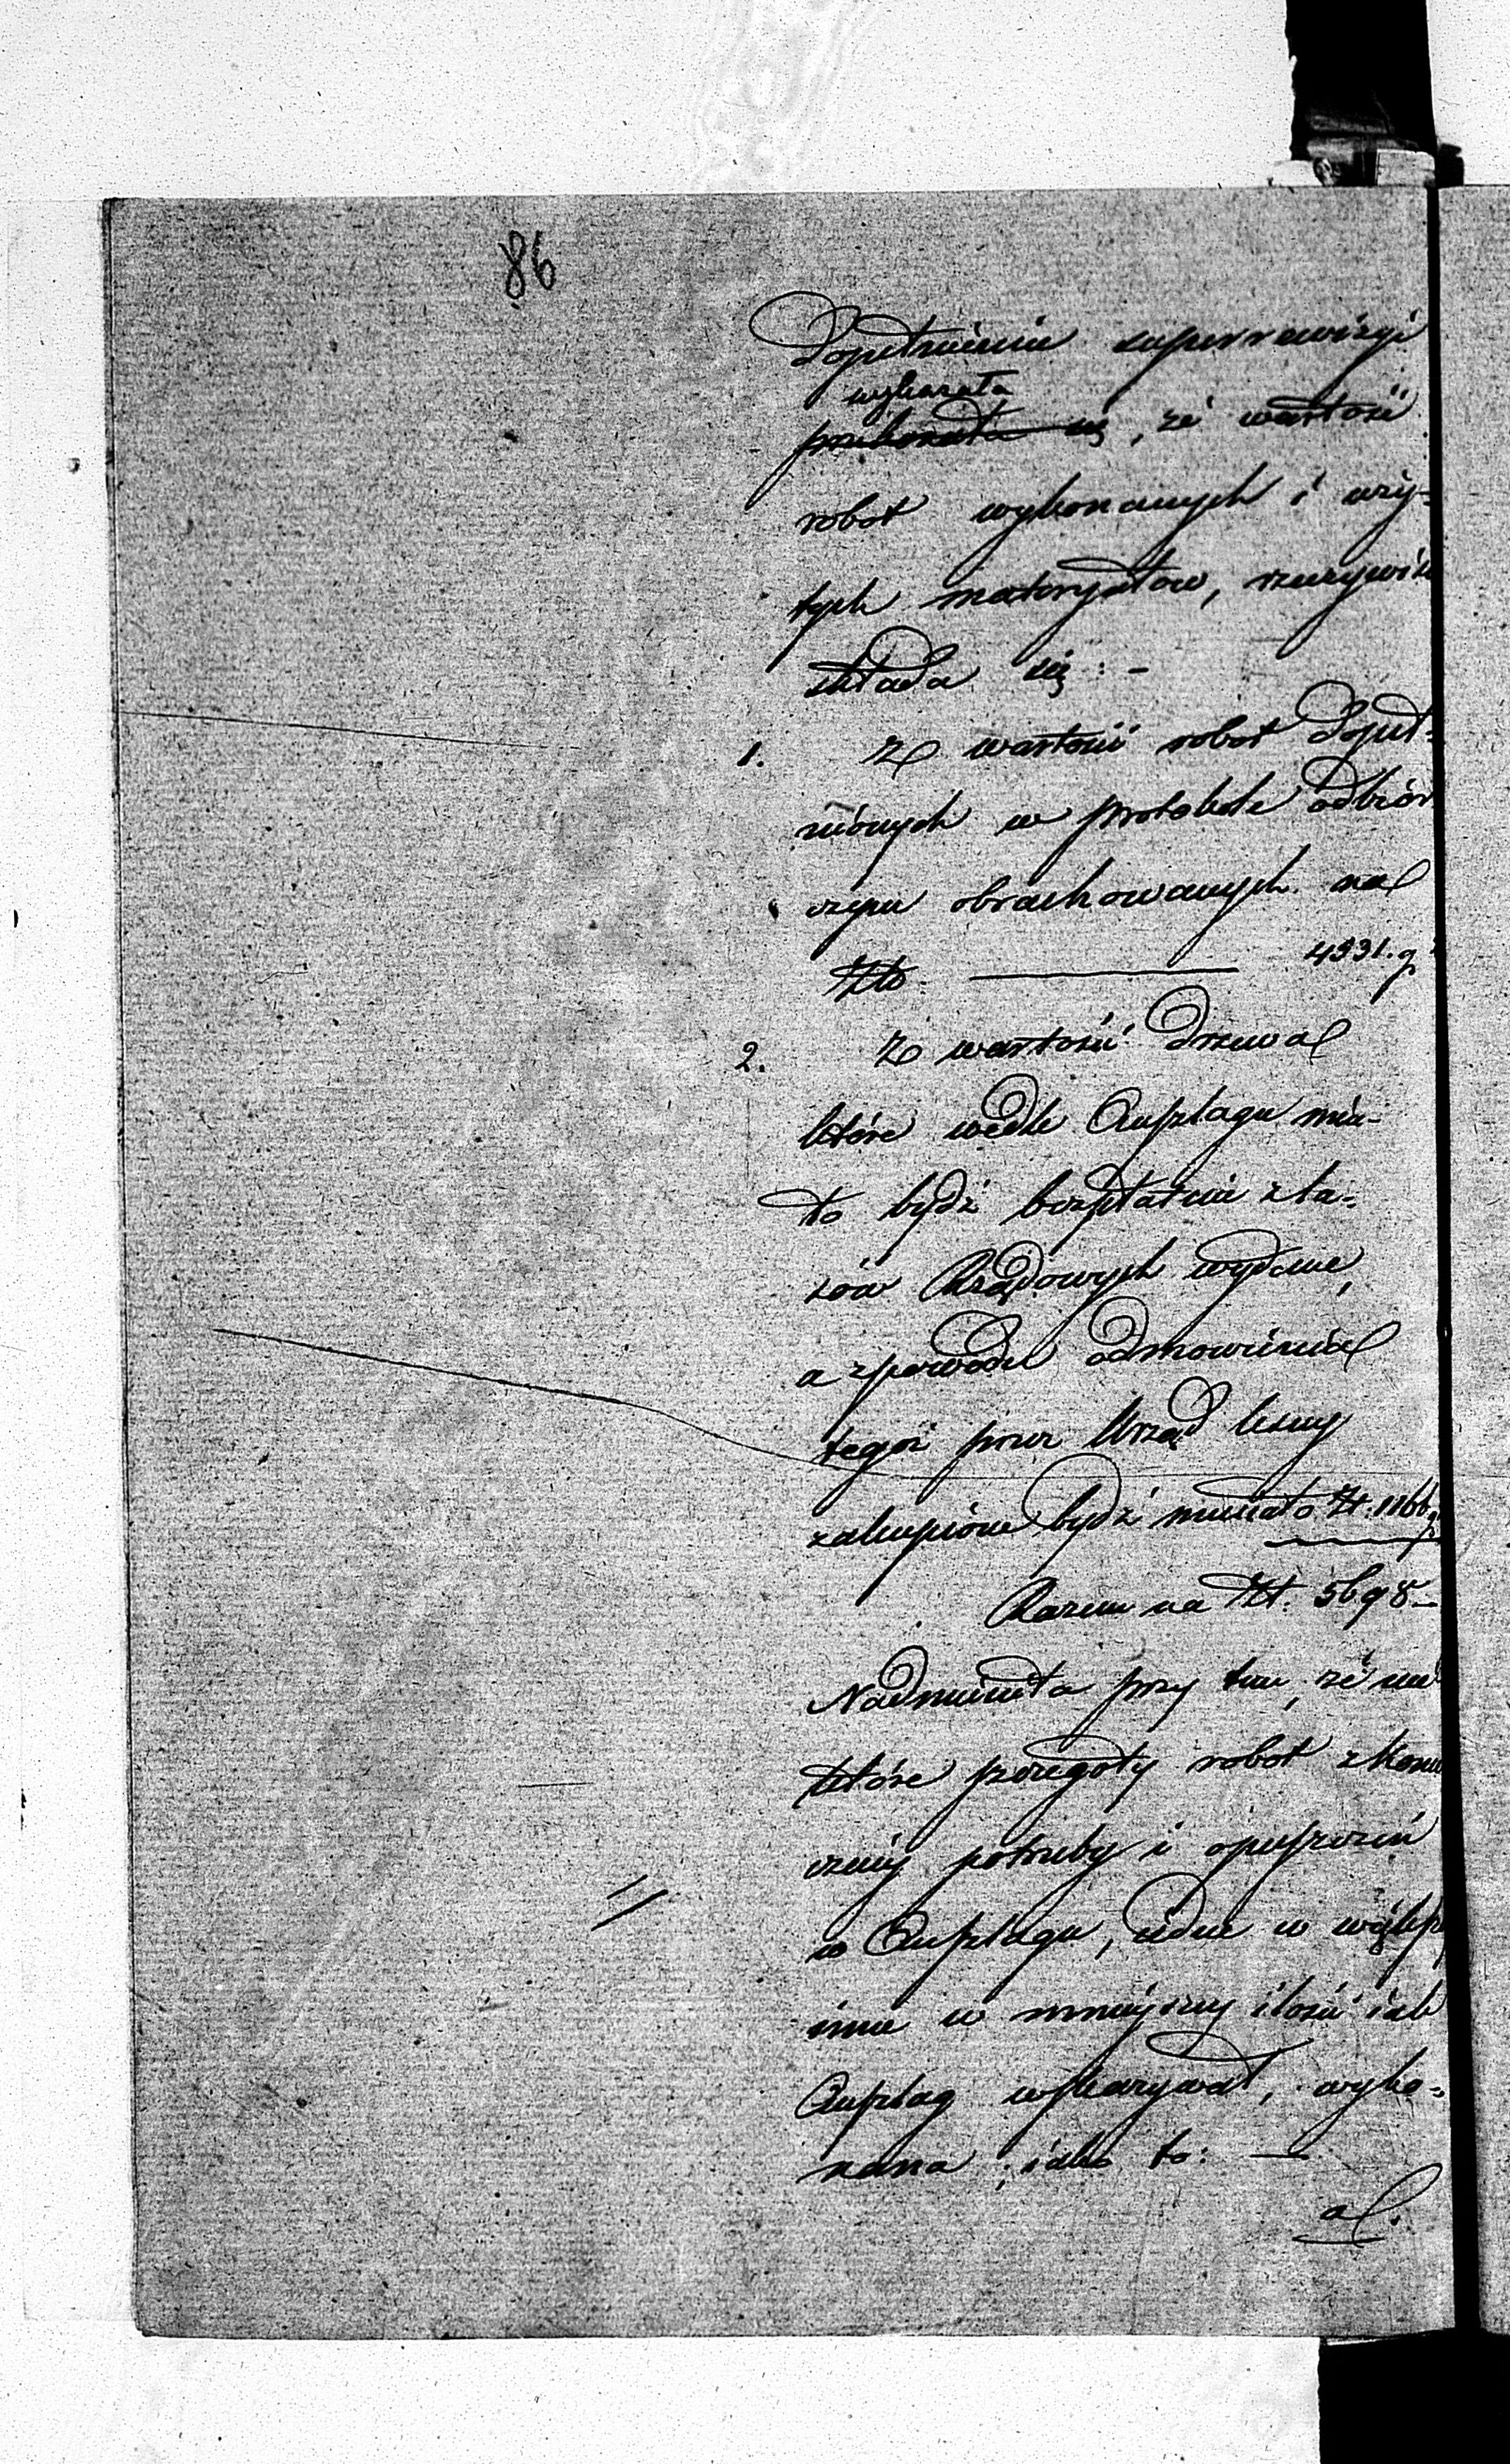 86
Dopełnienia superrewizyi
wykazała
przekonała się, że wartość
robot wykonanych i uży-
tych materyałów, rzeczywiście
składa się: -
1. Z wartości robot dopeł-
nionych w protokole odbiór
czym obrachowanych na
Złto. 4531. g
2. Z wartości drzewa
które wedle Anszlagu mia-
ło bydź bezpłatnie z la-
sów Rządowych wydane,
a z powodu odmowienia
tegoż przez Urząd leśny
zakupione bydź musiało Zł. 1166 g
Razem na Zł. 5698 -
Nadmieniła przy tem, że nie
które szczegóły robot z konie
cznéj potrzeby i opuszczeń
w Anszlagu, iedne w większéj
inne w mnieyszey ilości iak
Anszlag wskazywał, wyko-
nana; iako to: —
a.